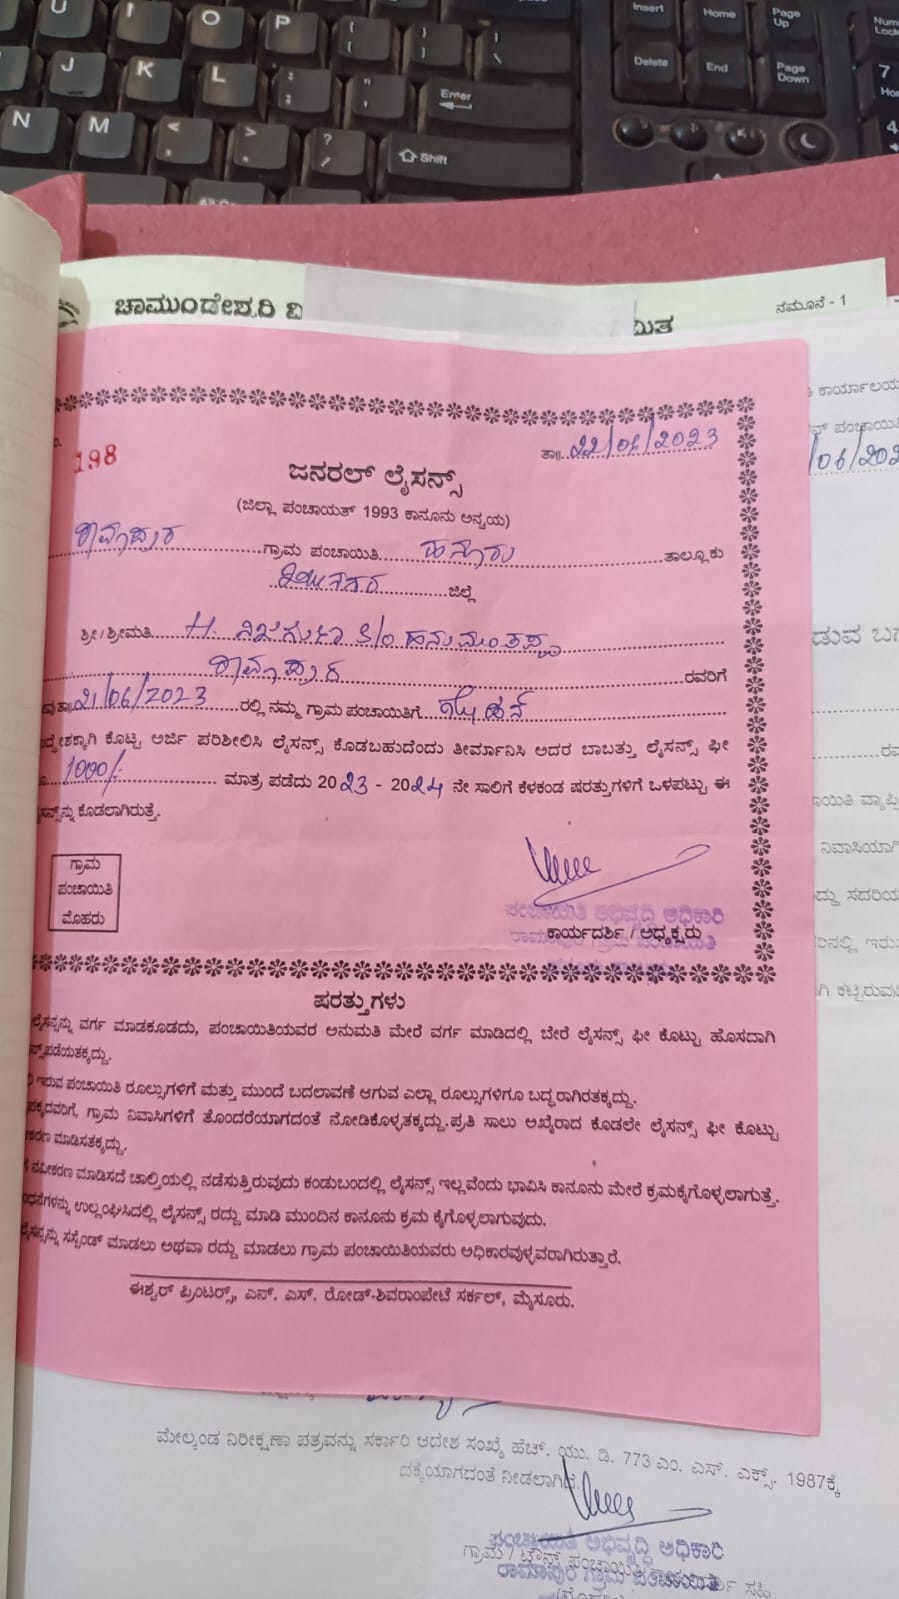 U I O P Insert Home Page Up Num Lock
J K L Enter Delete End Page Down 7
N M < > ? / Shift 4
ಚಾಮುಂಡೇಶ್ವರಿ ವಿ
ನಮೂನೆ - 1
ಮಿತ
198
ತಾ|| 22/06/2023
ಜನರಲ್ ಲೈಸನ್ಸ್
(ಜಿಲ್ಲಾ ಪಂಚಾಯತ್ 1993 ಕಾನೂನು ಅನ್ವಯ)
ರಾಮಾಪುರ ಗ್ರಾಮ ಪಂಚಾಯಿತಿ ಹನೂರು ತಾಲ್ಲೂಕು
ಜಿಲ್ಲೆ
ಶ್ರೀ/ಶ್ರೀಮತಿ H. ನಿಜಗುಣ S/o ಹನುಮಂತಪ್ಪ
ರಾಮಾಪುರ ರವರಿಗೆ
ತಾ|| 21/06/2023 ರಲ್ಲಿ ನಮ್ಮ ಗ್ರಾಮ ಪಂಚಾಯಿತಿಗೆ
ದ್ದೇಶಕ್ಕಾಗಿ ಕೊಟ್ಟ ಅರ್ಜಿ ಪರಿಶೀಲಿಸಿ ಲೈಸನ್ಸ್ ಕೊಡಬಹುದೆಂದು ತೀರ್ಮಾನಿಸಿ ಅದರ ಬಾಬತ್ತು ಲೈಸನ್ಸ್ ಫೀ
1000/- ಮಾತ್ರ ಪಡೆದು 2023 - 2024 ನೇ ಸಾಲಿಗೆ ಕೆಳಕಂಡ ಷರತ್ತುಗಳಿಗೆ ಒಳಪಟ್ಟು ಈ
ಸನ್ಸ್‌ನ್ನು ಕೊಡಲಾಗಿರುತ್ತೆ.
ಗ್ರಾಮ
ಪಂಚಾಯಿತಿ
ಮೊಹರು
ಪಂಚಾಯಿತಿ ಅಭಿವೃದ್ಧಿ ಅಧಿಕಾರಿ
ಕಾರ್ಯದರ್ಶಿ / ಅಧ್ಯಕ್ಷರು
ರಾಮಾಪುರ ಗ್ರಾಮ ಪಂಚಾಯಿತಿ
ಷರತ್ತುಗಳು
ಲೈಸನ್ಸನ್ನು ವರ್ಗ ಮಾಡಕೂಡದು, ಪಂಚಾಯಿತಿಯವರ ಅನುಮತಿ ಮೇರೆ ವರ್ಗ ಮಾಡಿದಲ್ಲಿ ಬೇರೆ ಲೈಸನ್ಸ್ ಫೀ ಕೊಟ್ಟು ಹೊಸದಾಗಿ
ನ್ಸ್‌ಪಡೆಯತಕ್ಕದ್ದು.
ಇರುವ ಪಂಚಾಯಿತಿ ರೂಲ್ಸುಗಳಿಗೆ ಮತ್ತು ಮುಂದೆ ಬದಲಾವಣೆ ಆಗುವ ಎಲ್ಲಾ ರೂಲ್ಸುಗಳಿಗೂ ಬದ್ಧರಾಗಿರತಕ್ಕದ್ದು.
ಪಕ್ಕದವರಿಗೆ, ಗ್ರಾಮ ನಿವಾಸಿಗಳಿಗೆ ತೊಂದರೆಯಾಗದಂತೆ ನೋಡಿಕೊಳ್ಳತಕ್ಕದ್ದು.ಪ್ರತಿ ಸಾಲು ಅಖೈರಾದ ಕೊಡಲೇ ಲೈಸನ್ಸ್ ಫೀ ಕೊಟ್ಟು
ಕರಣ ಮಾಡಿಸತಕ್ಕದ್ದು.
ನವೀಕರಣ ಮಾಡಿಸದೆ ಚಾಲ್ತಿಯಲ್ಲಿ ನಡೆಸುತ್ತಿರುವುದು ಕಂಡುಬಂದಲ್ಲಿ ಲೈಸನ್ಸ್ ಇಲ್ಲವೆಂದು ಭಾವಿಸಿ ಕಾನೂನು ಮೇರೆ ಕ್ರಮಕೈಗೊಳ್ಳಲಾಗುತ್ತೆ.
ಧನೆಗಳನ್ನು ಉಲ್ಲಂಘಿಸಿದಲ್ಲಿ ಲೈಸನ್ಸ್ ರದ್ದು ಮಾಡಿ ಮುಂದಿನ ಕಾನೂನು ಕ್ರಮ ಕೈಗೊಳ್ಳಲಾಗುವುದು.
ಲೈಸನ್ಸನ್ನು ಸಸ್ಪೆಂಡ್ ಮಾಡಲು ಅಥವಾ ರದ್ದು ಮಾಡಲು ಗ್ರಾಮ ಪಂಚಾಯಿತಿಯವರು ಅಧಿಕಾರವುಳ್ಳವರಾಗಿರುತ್ತಾರೆ.
ಈಶ್ವರ್ ಪ್ರಿಂಟರ್ಸ್, ಎನ್. ಎಸ್. ರೋಡ್-ಶಿವರಾಂಪೇಟೆ ಸರ್ಕಲ್, ಮೈಸೂರು.
ಮೇಲ್ಕಂಡ ನಿರೀಕ್ಷಣಾ ಪತ್ರವನ್ನು ಸರ್ಕಾರಿ ಆದೇಶ ಸಂಖ್ಯೆ ಹೆಚ್. ಯು. ಡಿ. 773 ಎಂ. ಎಸ್. ಎಕ್ಸ್. 1987ಕ್ಕೆ
ದಕ್ಕೆಯಾಗದಂತೆ ನೀಡಲಾಗಿದೆ.
ಪಂಚಾಯಿತಿ ಅಭಿವೃದ್ಧಿ ಅಧಿಕಾರಿ
ಗ್ರಾಮ / ಟೌನ್ ಪಂಚಾಯಿತಿ
ರಾಮಾಪುರ ಗ್ರಾಮ ಪಂಚಾಯಿತಿ